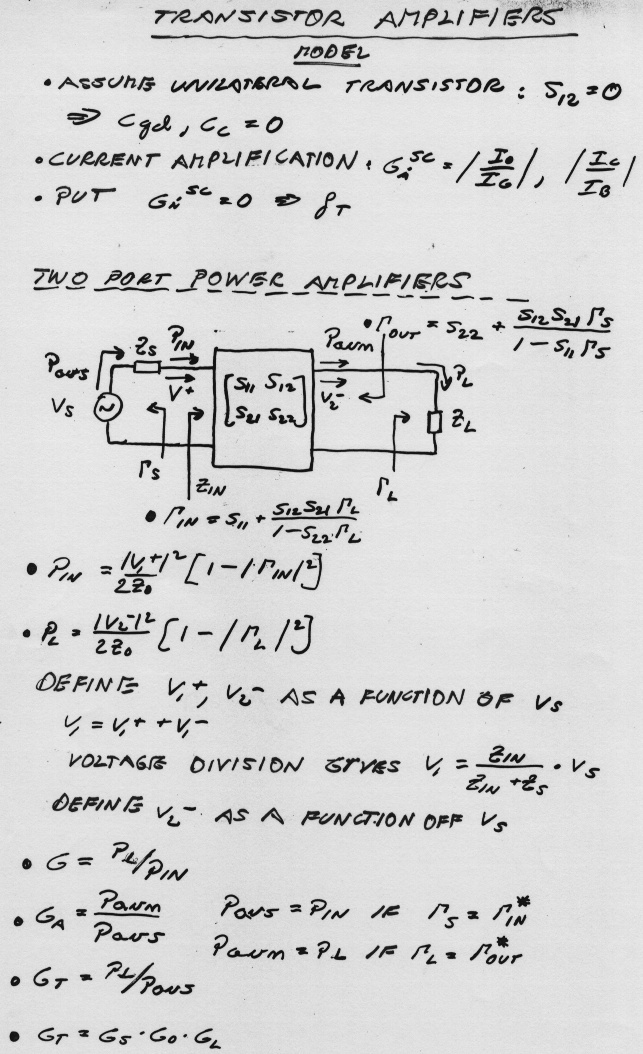 TRANSISTOR AMPLIFIERS
MODEL
• ASSUME UNILATERAL TRANSISTOR: S12 = 0
⇒ Cgd, Cc = 0
• CURRENT AMPLIFICATION: Gi^SC = |ID/IG|, |IC/IB|
• PUT Gi^SC = 0 ⇒ fT
TWO PORT POWER AMPLIFIERS
• ΓOUT = S22 + S12 S21 ΓS / 1 - S11 ΓS
Pavs ZS PIN Pavm PL
VS V+ S11 S12 V2-
S21 S22 ZL
ΓS ZIN ΓL
• ΓIN = S11 + S12 S21 ΓL / 1 - S22 ΓL
• PIN = |V1+|²/2Z0 [1 - |ΓIN|²]
• PL = |V2-|²/2Z0 [1 - |ΓL|²]
DEFINE V1+, V2- AS A FUNCTION OF VS
V1 = V1+ + V1-
VOLTAGE DIVISION GIVES V1 = ZIN / ZIN + ZS · VS
DEFINE V2- AS A FUNCTION OFF VS
• G = PL/PIN
• GA = Pavm/Pavs Pavs = PIN IF ΓS = ΓIN*
Pavm = PL IF ΓL = ΓOUT*
• GT = PL/Pavs
• GT = GS · G0 · GL